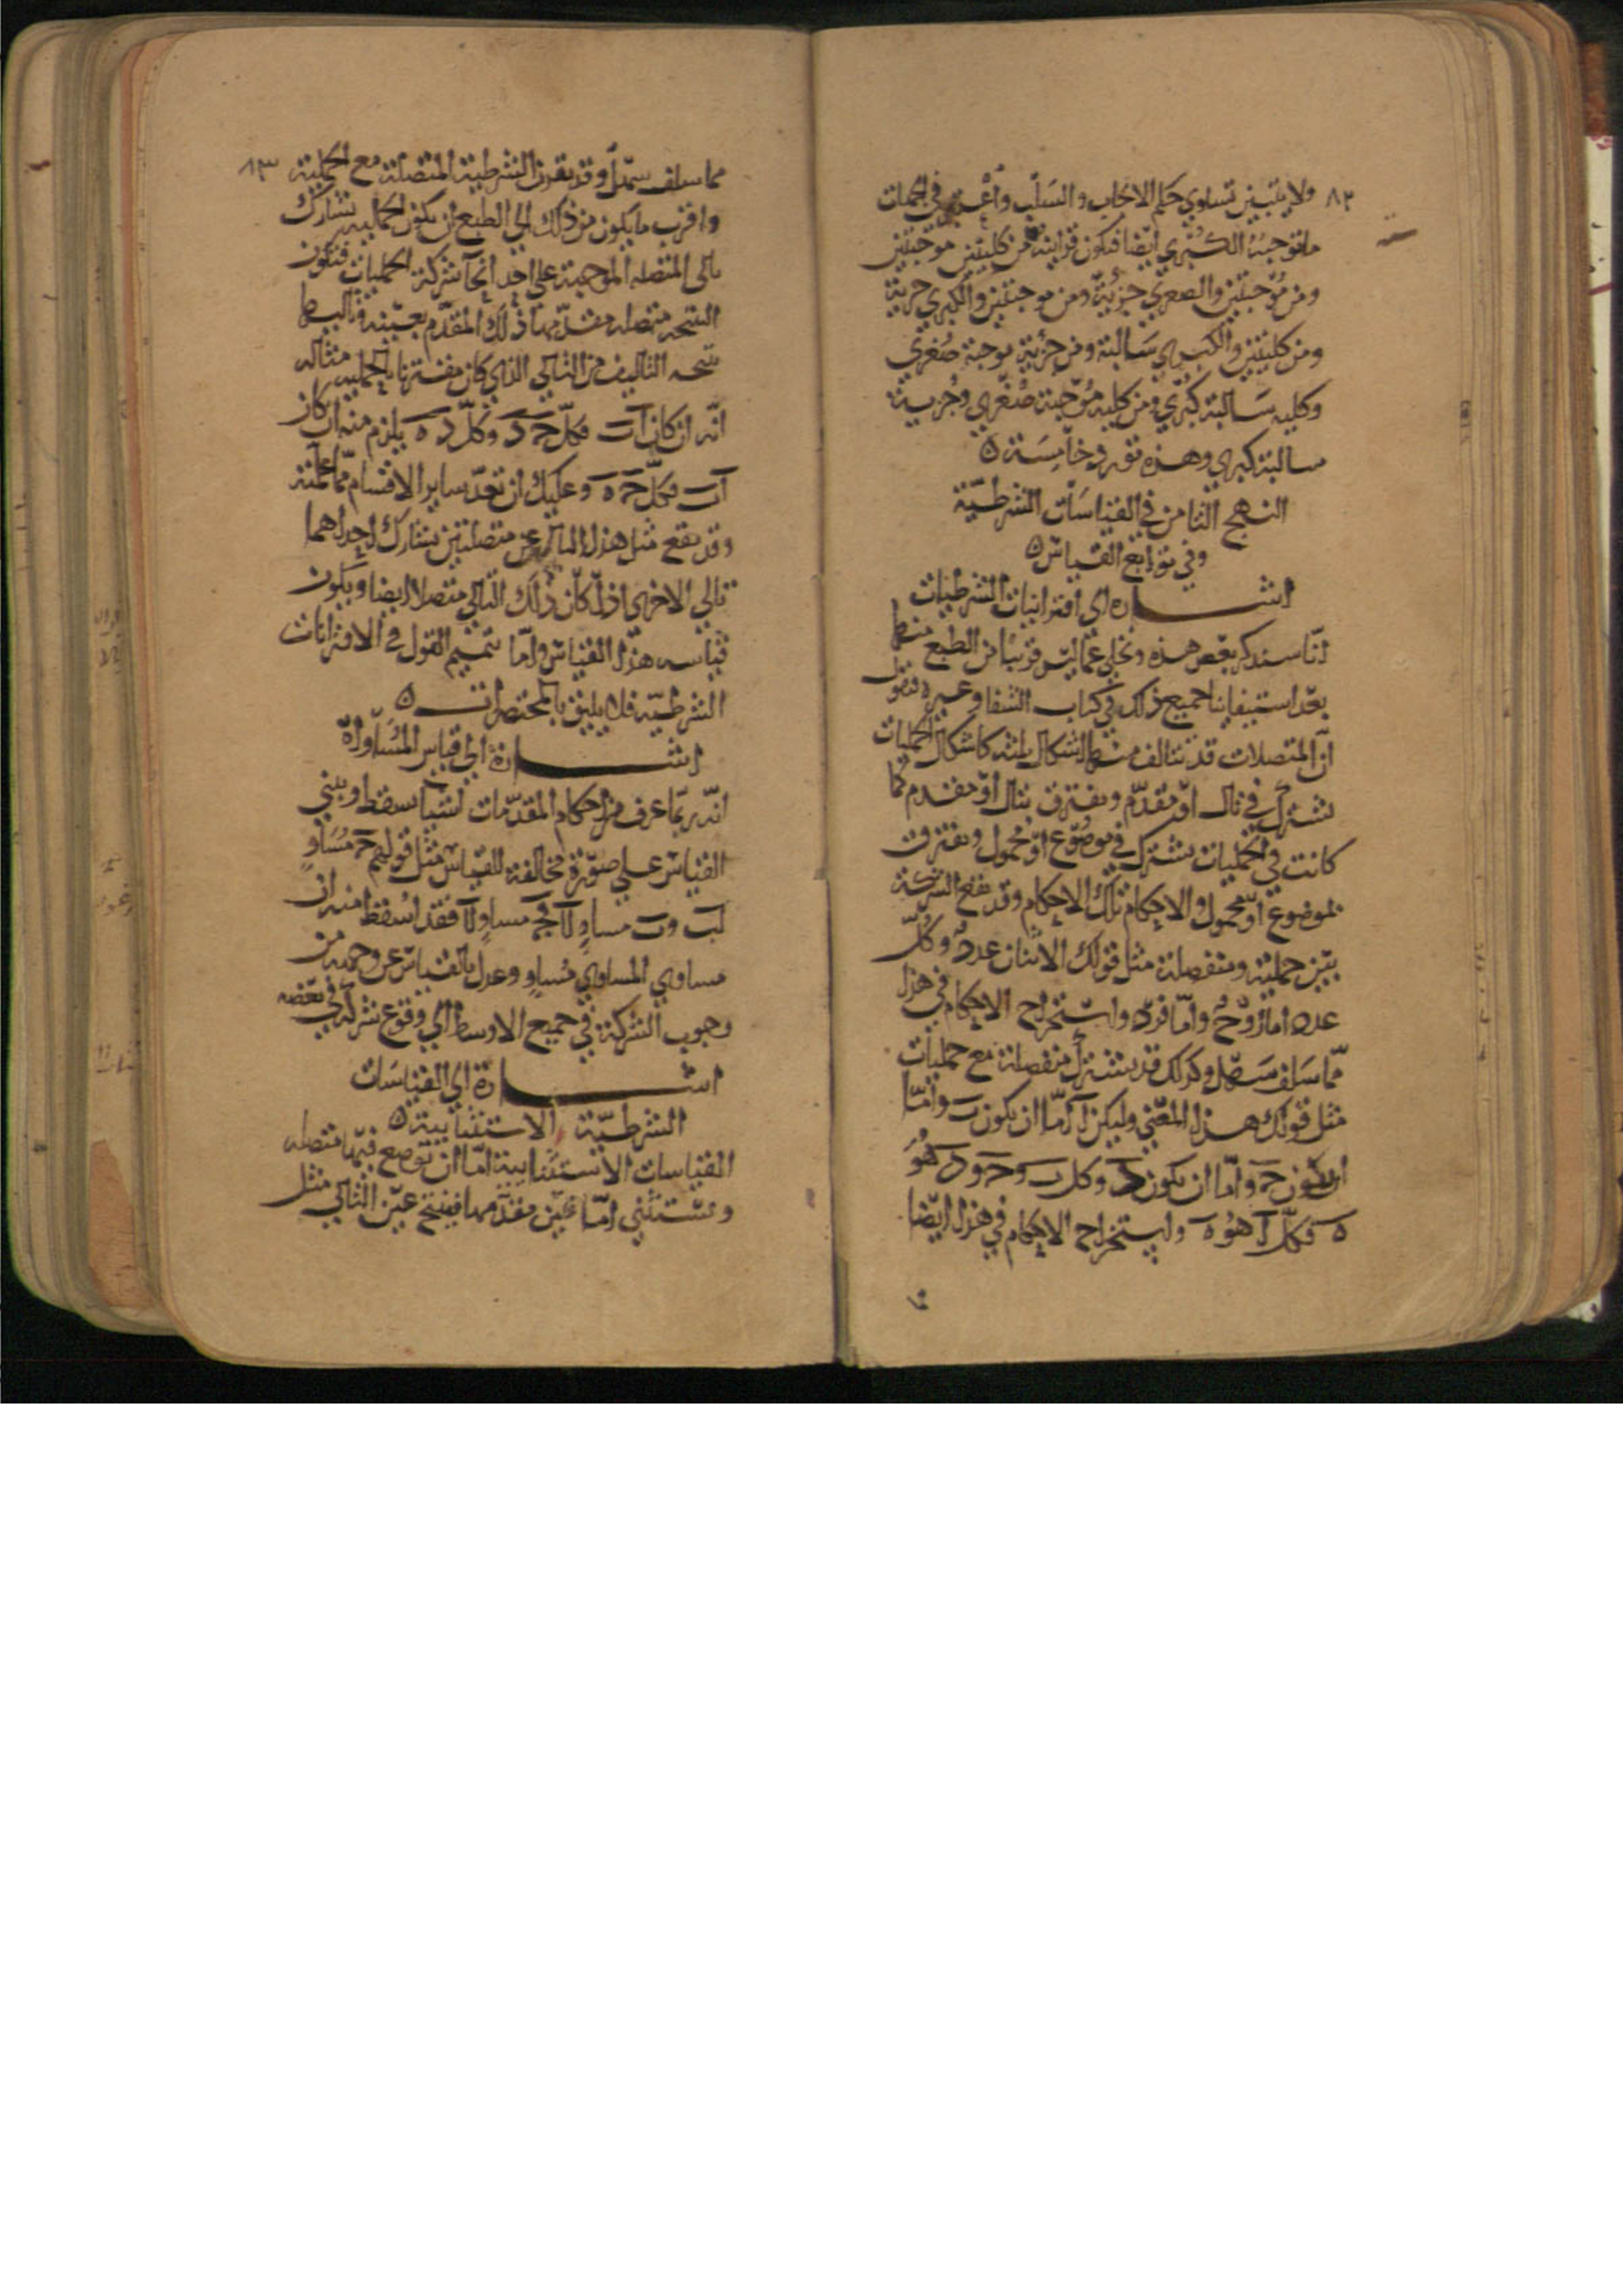 ٨٢ ولا يتبين تساوي حكم الايجاب والسلب واعتبر في الجهات
ما توجبه الكبرى ايضا فيكون قرائنه من كليتين موجبتين
ومن موجبتين والصغرى جزئية ومن موجبتين والكبرى جزية
ومن كليتين والكبرى سالبة ومن جزئية موجبة صغرى
وكليه سالبة كبرى ومن كليه موجبة صغرى وجزيية
سالبة كبرى وهذه تورد خامسة ه
النهج الثامن في القياسات الشرطية
وفي توابع القياس ه
اشارة الى اقترانيات الشرطيات
انا سنذكر بعض هذه ونخلي عما ليس قريبا من الطبع منها
بعد استيفاينا جميع ذلك في كتاب الشفا وغيره فنقول
ان المتصلات قد تتالف منها اشكال ثلثه كاشكال الحمليات
تشترك في تال او مقدم وتفترق بتال او مقدم كما
كانت في الحمليات تشترك في موضوع او محمول وتفترق
بموضوع او محمول والاحكام تلك الاحكام وقد تقع الشركة
بين حملية ومنفصلة مثل قولك الاثنان عدد وكل
عدد اما زوج واما فرد واستخراج الاحكام في هذا
مما سلف سهل وكذلك قد تشترك منفصلة مع حمليات
مثل قولك هذا المعنى وليكن آ اما ان يكون ب واما
ان يكون ج واما ان يكون د وكل ب وج ود هو
ه فكل آ هو ه واستخراج الاحكام في هذا ايضا
٨٣ مما سلف سهل وقد تقرن الشرطية المتصلة مع الحملية
واقرب ما يكون من ذلك الى الطبع ان تكون الحمليه تشارك
تالى المتصله الموجبة على احد انحآ شركة الحمليات فتكون
النتيجه متصله مقدمها ذلك المقدم بعينه وتاليها
نتيجه التاليف من التالي الذي كان مقترنا بالحمليه مثاله
انه ان كان آ ب فكل ج د وكل د ه يلزم منه ان كان
آ ب فكل ج ه وعليك ان تعد ساير الاقسام مما علمته
وقد يقع مثل هذا التاليف من متصلتين تشارك احداهما
تالي الاخرى اذا كان ذلك التالي متصلا ايضا ويكون
قياسه هذا القياس واما تتميم القول في الاقترانات
الشرطية فلا يليق بالمختصرات ه
اشارة الى قياس المساواة
انه ربما عرف من احكام المقدمات اشيا تسقط ويبنى
القياس على صورة مخالفة للقياس مثل قولهم ج مساو
لب وب مساو لآ فج مساو لآ فقد اسقط منه ان
مساوي المساوي مساو وعدل بالقياس عن وجهه من
وجوب الشركة في جميع الاوسط الى وقوع شركة في بعضه
اشارة الى القياسات
الشرطية الاستثنايية ه
القياسات الاستثنايية اما ان توضع فيها متصله
ويستثنى اما عين مقدمها فينتج عين التالي مثل